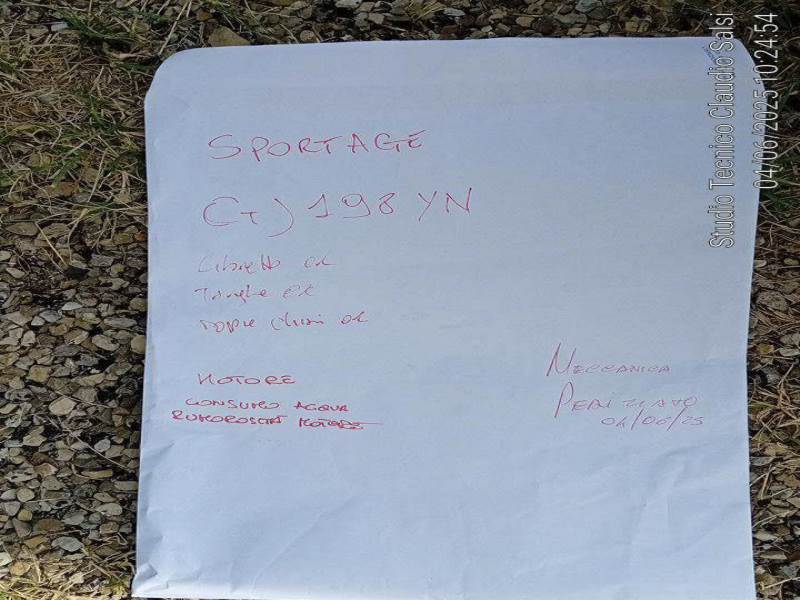 SPORTAGE
(CT) 198 YN
Libretto ok
Targhe ok
Doppie chiavi ok
MOTORE
CONSUMO ACQUA
RUMOROSITÀ MOTORE
MECCANICA
PERIZIATO
04/06/25
Studio Tecnico Claudio Salsi
04/06/2025 10:24:54